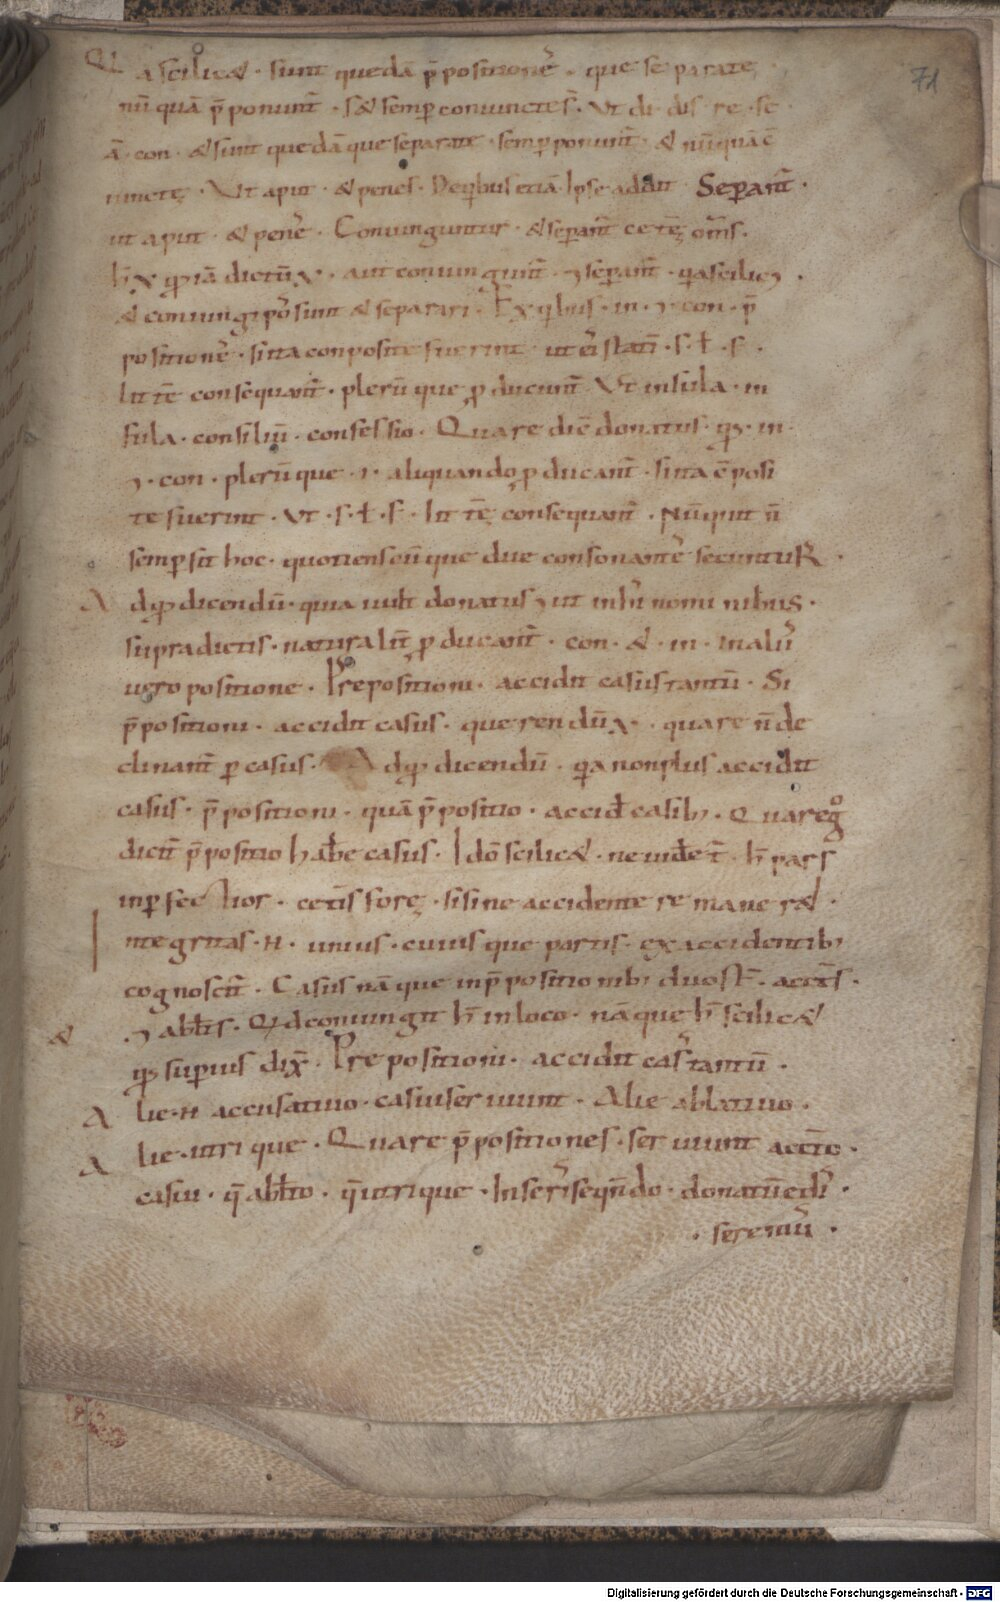 71
Qia scilic& · sunt quedā p̄positionēs · que separate
nū quā p̄ponunt̄ · s& semp coniuncte s̄ · Vt di · dis · re · se
ā · con · & sunt quedā que separate · semp ponunt̄ · & nūquā c̄
iuncte · Vt aput · & penes · De quibus etiā · Ipse addit · Separant̄ ·
ut aput · & penes · Coniunguntur · & separant̄ cetere oms ·
aut coniungunt̄ · separant̄ · quia scilic&
& coniungi possunt & separari · Ex quibus · in · & con · p̄
positiones · si ita conposite fuerint · ut eis statī · s · t · f ·
litte consequant̄ · plerūque pducunt̄ Vt insula · in
fula · consiliū · confessio · Quare dic̄ donatus · in ·
& · con · plerūque · i · aliquando pducant̄ · si ita c̄posi
te fuerint · Vt · s · t · f · litte consequant̄ · Nūquit n̄
semp sit hoc · quotienscūque due consonantes secuntuR ·
Ad dicendū · quia uult donatus ut in his nominibus ·
supradictis · naturalit̄ pducant̄ · con · & · in · in aliis
uero positione · Prepositioni · accidit casus tantū · Si
p̄positioni · accidit casus · querendū · quare n̄ de
clinant̄ p casus · Ad dicendū · quia non plus accidit
casus · p̄positioni · quā p̄positio · accid casib; · Quare g̊
dicit̄ p̄positio habe casus · Ido scilic& · ne uide t̄ · h̄ pars
inpfectior · cetis fore · si sine accidente remaner& ·
Integritas · n · unius · cuiusque partis · ex accidentib;
cognoscit̄ · Casus nāque in p̄positionib; duo st̄ · acct̄s ·
& ablt̄s · Qd coniungit h̄ in loco · nāque h̄ scilic&
superius dix̄ · Prepositioni · accidit cas tantū ·
Alie · n accusatiuo · casui seruiunt · Alie ablatiuo ·
Alie · utrique · Quare p̄positiones · seruiunt accto ·
casui · q̄ ablto · q̄ utrique · In seris seqn̄do · donatū edis ·
seremus ·
Digitalisierung gefördert durch die Deutsche Forschungsgemeinschaft · DFG